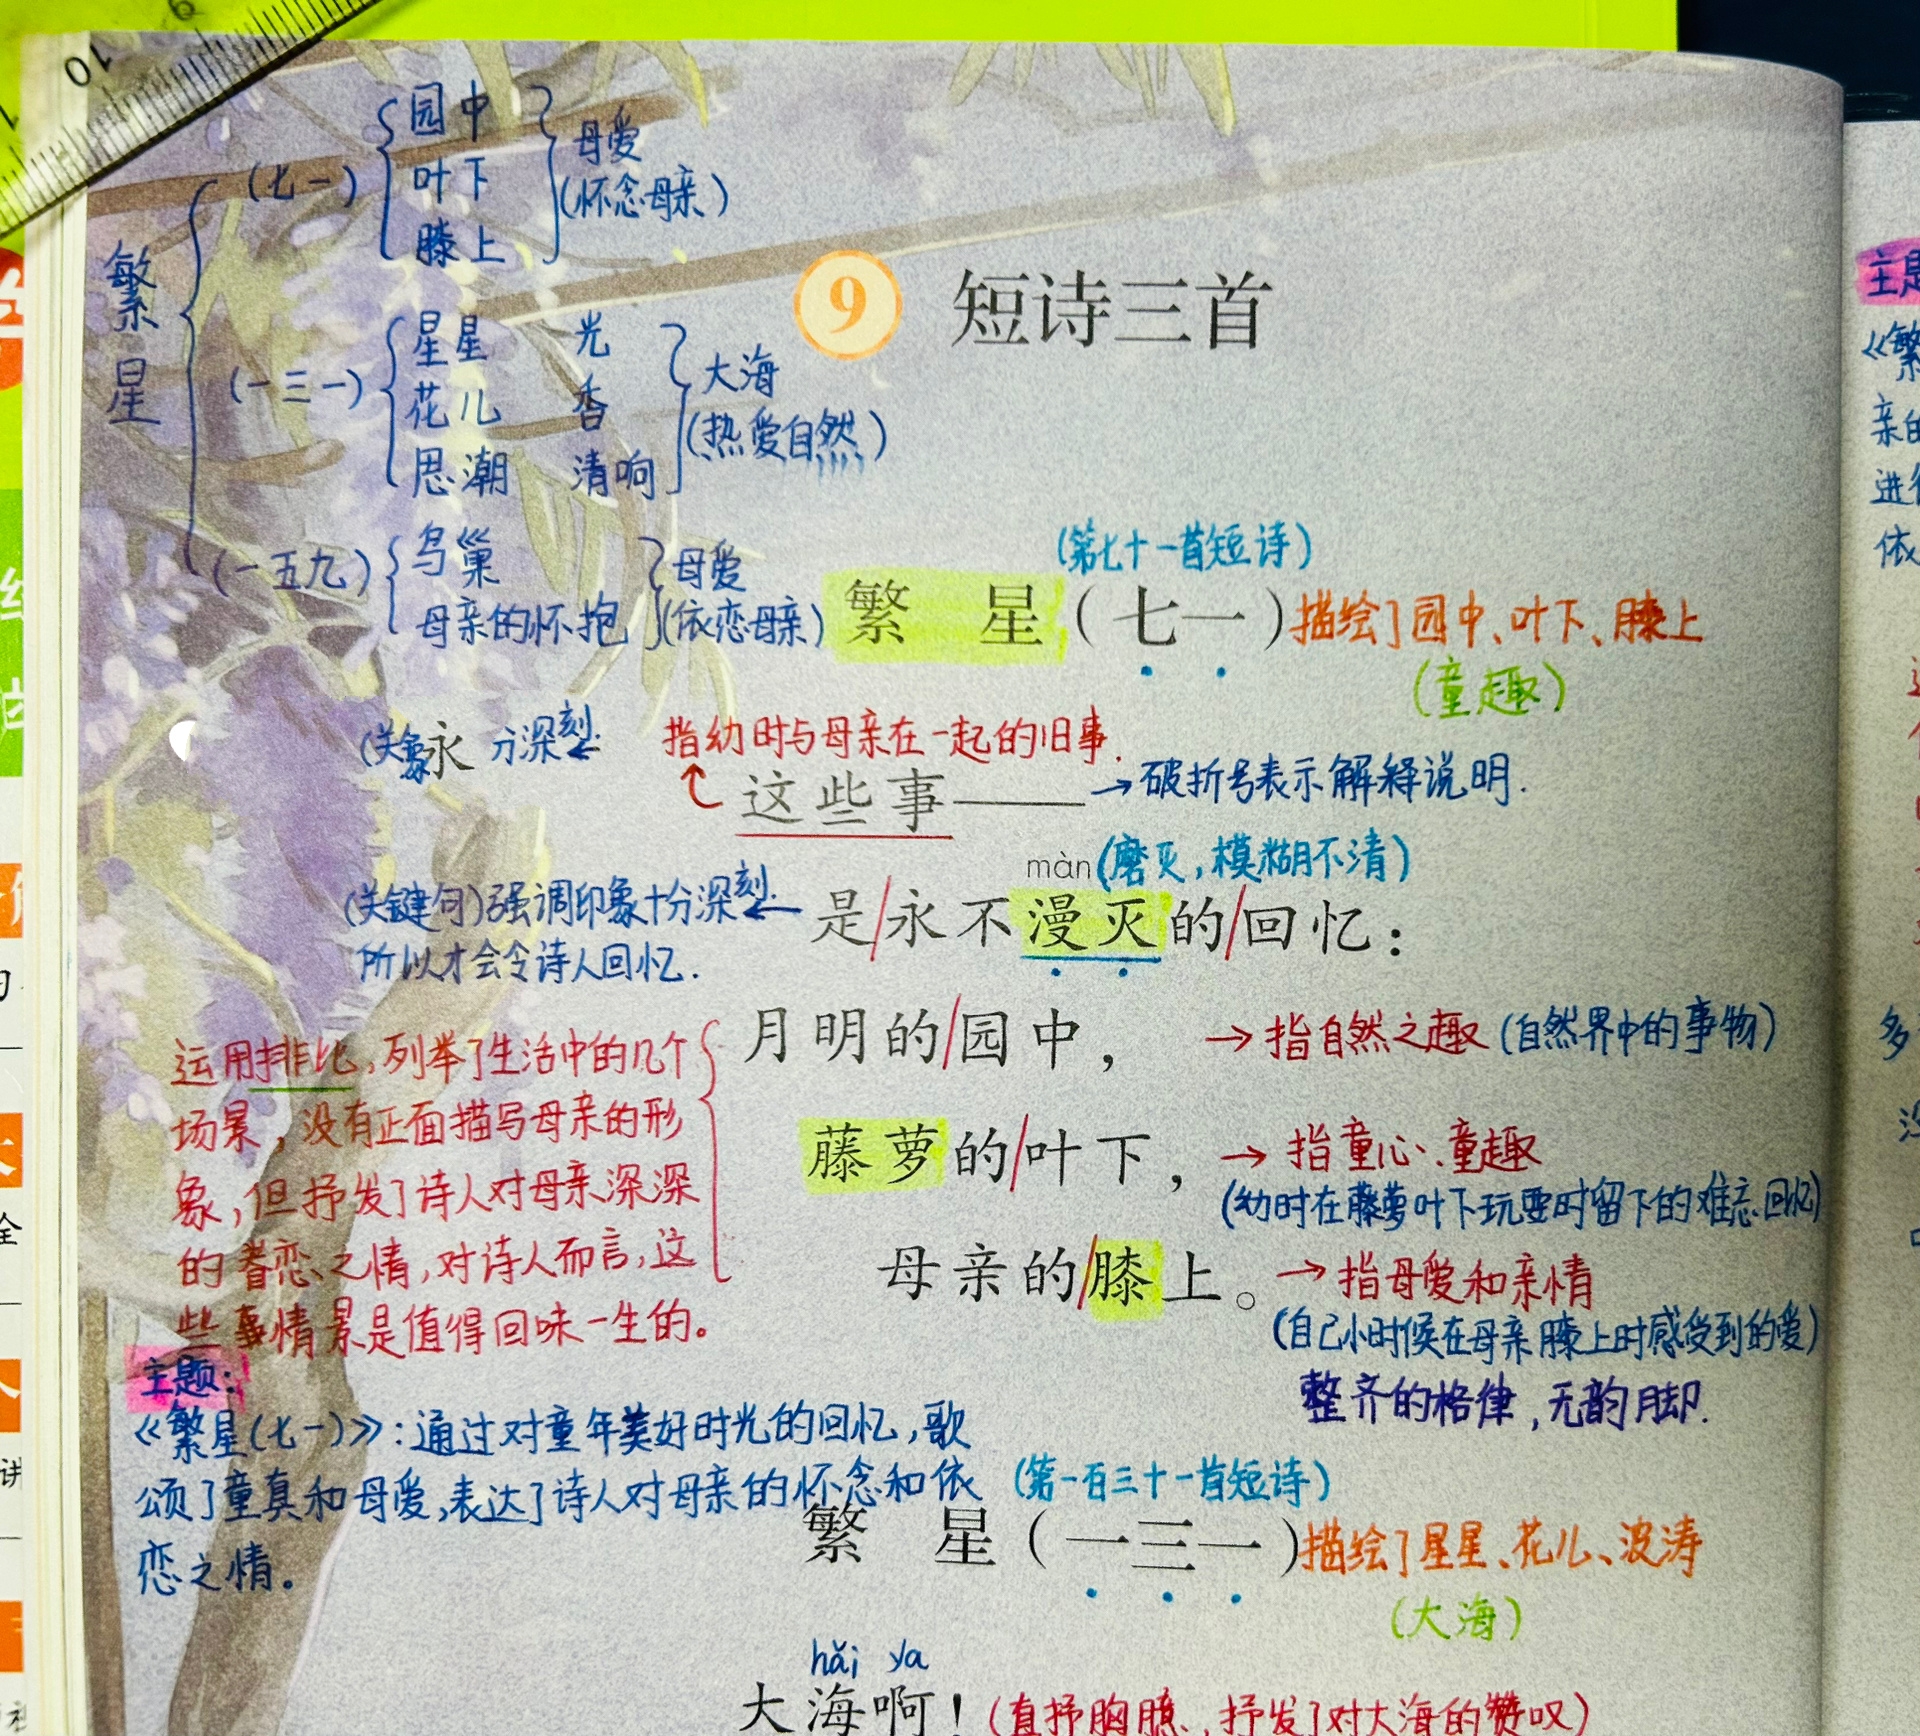 10
9
园中
叶下
膝上
母爱
(怀念母亲)
(七一)
繁星
星星 光
花儿 香
思潮 清响
大海
(热爱自然)
(一三一)
鸟巢
母亲的怀抱
母爱
(依恋母亲)
(一五九)
9 短诗三首
(第七十一首短诗)
繁 星(七一)描绘了园中、叶下、膝上
(童趣)
永 分深刻
指幼时与母亲在一起的旧事.
这些事—— →破折号表示解释说明.
màn(磨灭,模糊不清)
是/永不漫灭的/回忆:
(关键句)强调印象十分深刻.
所以才会令诗人回忆.
月明的/园中, →指自然之趣(自然界中的事物)
藤萝的/叶下, →指童心、童趣
(幼时在藤萝叶下玩耍时留下的难忘回忆)
母亲的/膝上。 →指母爱和亲情
(自己小时候在母亲膝上时感受到的爱)
整齐的格律,无韵脚.
运用排比,列举了生活中的几个
场景,没有正面描写母亲的形
象,但抒发了诗人对母亲深深
的眷恋之情,对诗人而言,这
些事情景是值得回味一生的。
主题:
《繁星(七一)》:通过对童年美好时光的回忆,歌
颂了童真和母爱,表达了诗人对母亲的怀念和依
恋之情。
(第一百三十一首短诗)
繁 星(一三一)描绘了星星、花儿、波涛
(大海)
hǎi ya
大海啊!(直抒胸臆,抒发了对大海的赞叹)
主题
《繁
亲的
进行
依
多